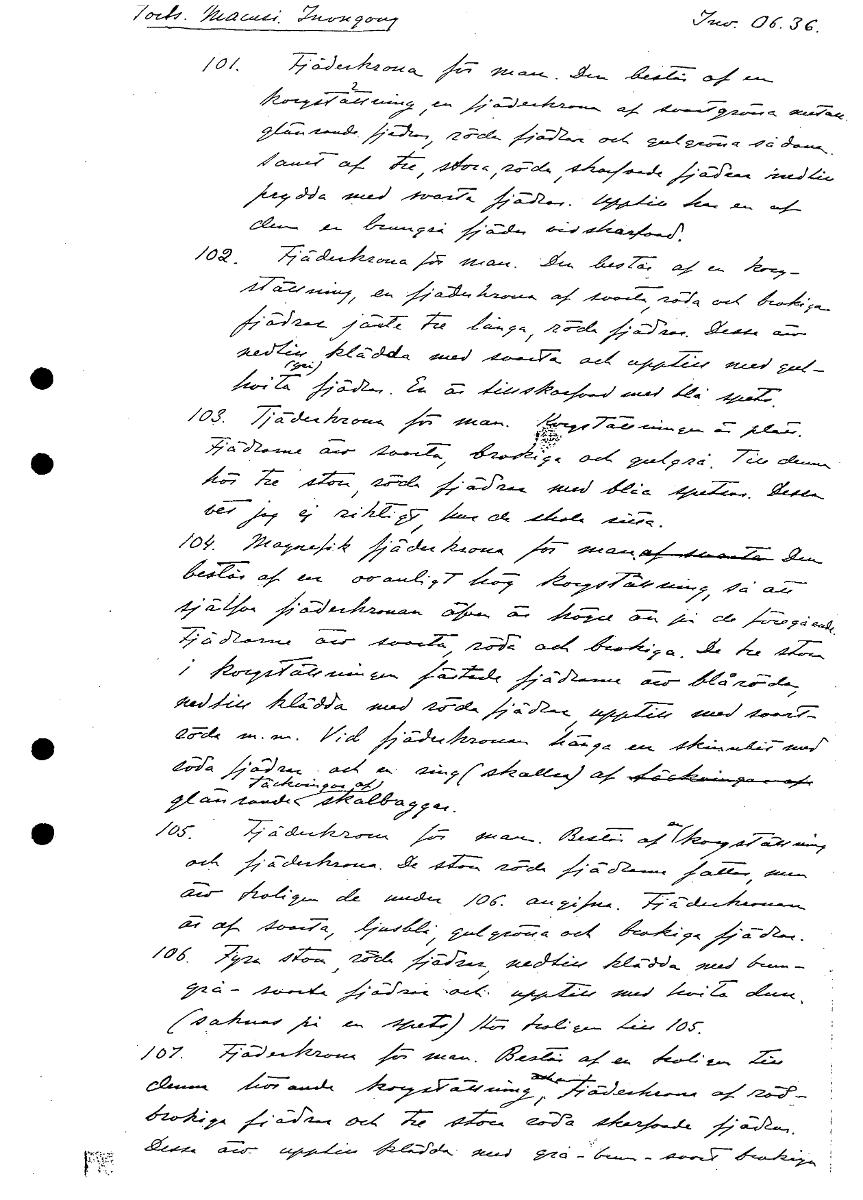 Forts. Macusi. Inongong Inv. 06.36.
101. Fjäderkrona för man. Den består af en
korgställning, en fjäderkrona af svartgröna metall
glänsande fjädrar, röda fjädrar och gulgröna sådana.
samt af tre, stora, röda, skarfvade fjädrar nedtill
prydda med svarta fjädrar. Upptill har en af
dem en brungrå fjäder vidskarfvad.
102. Fjäderkrona för man. Den består af en korg-
ställning, en fjäderkrona af svarta, röda och brokiga
fjädrar jämte tre långa, röda fjädrar. Dessa äro
nedtill klädda med svarta och upptill med gul-
hvita fjädrar. En är tillskarfvad med blå spets.
103. Fjäderkrona för man. Korgställningen är platt.
Fjädrarne äro svarta, brokiga och gulgrå. Till denna
hör tre stora, röda fjädrar med blåa spetsar. Dessa
vet jag ej riktigt, hur de skola sitta.
104. Magnefik fjäderkrona för man, af svarta Den
består af en ovanligt hög korgställning, så att
själfva fjäderkronan äfven är högre än på de föregående.
Fjädrarne äro svarta, röda och brokiga. De tre stora
i korgställningen fästade fjädrarne äro blåröda,
nedtill klädda med röda fjädrar, upptill med svart-
röda m.m. Vid fjäderkronan hänga en skinnbit med
röda fjädrar och en ring (skallra) af täckvingar af
täckvingar af
glänsande skalbaggar.
105. Fjäderkrona för man. Består af en korgställning
och fjäderkrona. De stora röda fjädrarne fattas, men
äro troligen de under 106. angifna. Fjäderkronan
är af svarta, ljusblå, gulgröna och brokiga fjädrar.
106. Fyra stora, röda fjädrar, nedtill klädda med brun-
grå-svarta fjädrar och upptill med hvita dun.
(saknas på en spets) Hör troligen till 105.
107. Fjäderkrona för man. Består af en troligen till
denna hörande korgställning, fjäderkrona af röd-
brokiga fjädrar och tre stora röda skarfvade fjädrar.
Dessa äro upptill klädda med grå-brun-svart brokiga